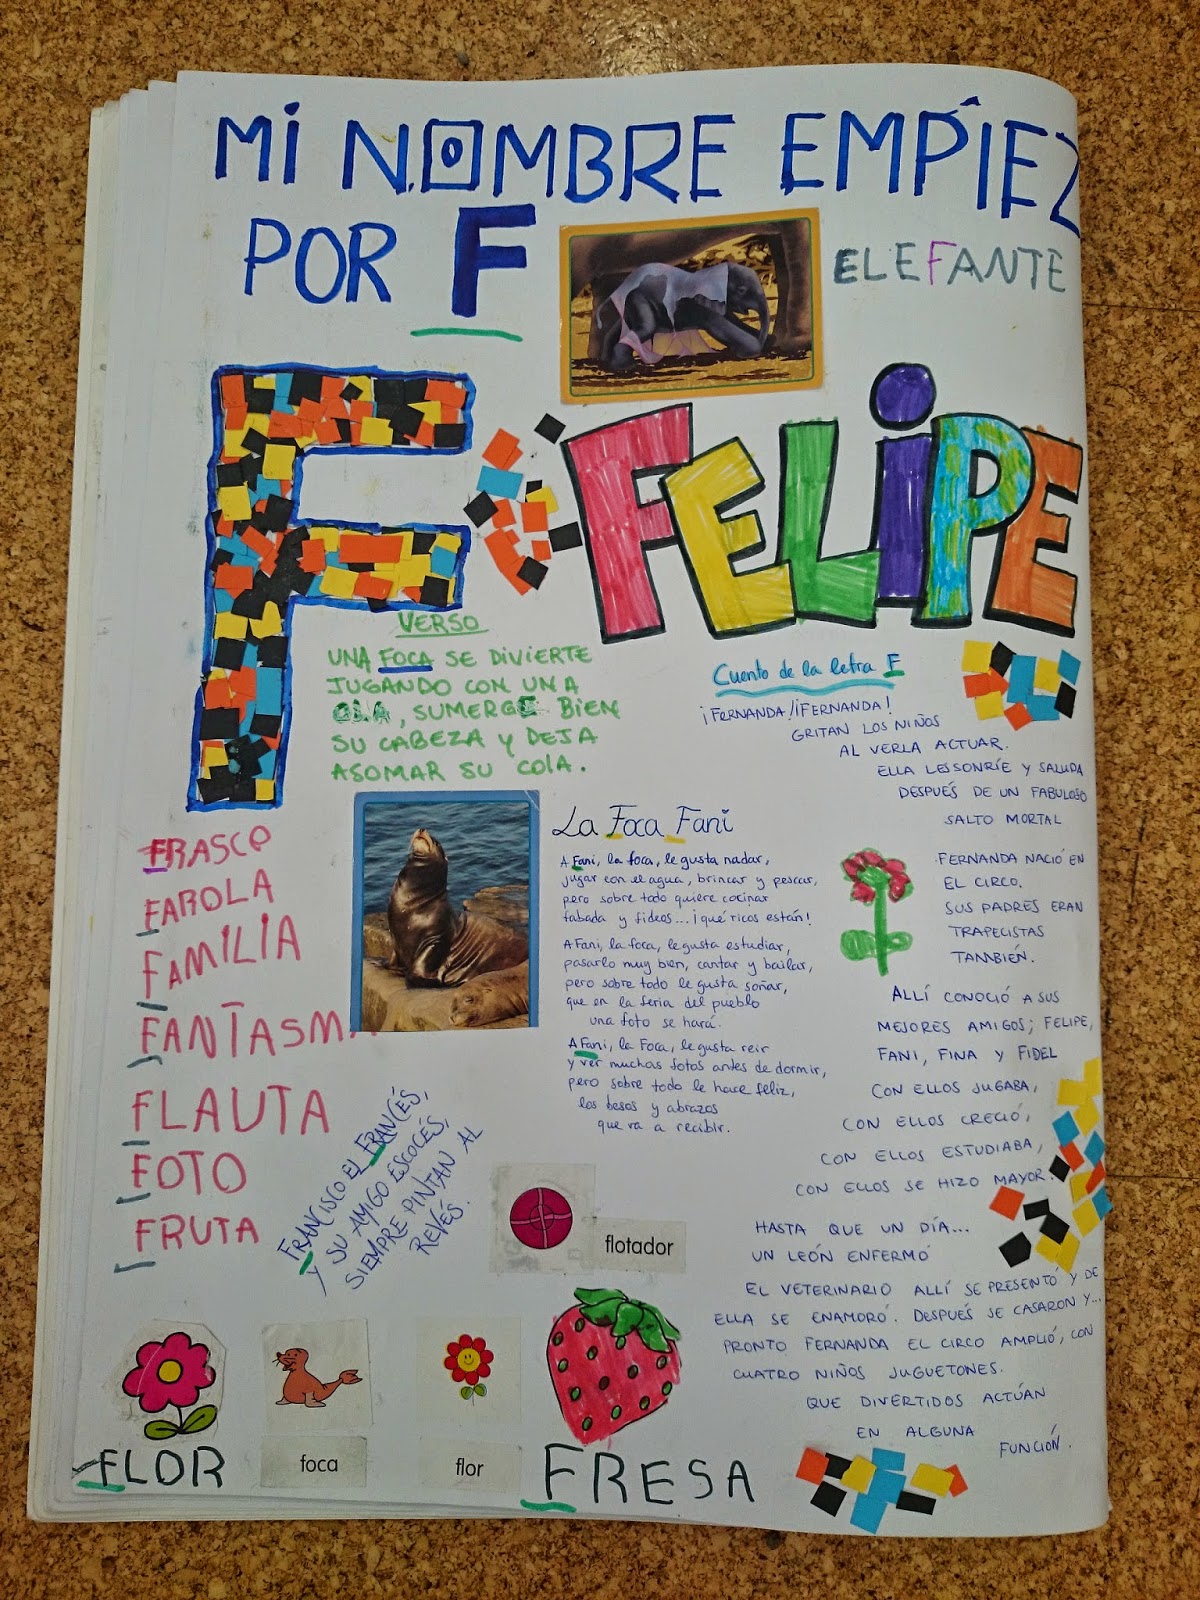 MI NOMBRE EMPIEZ
POR F
ELEFANTE
FELIPE
VERSO
UNA FOCA SE DIVIERTE
JUGANDO CON UNA
OLA, SUMERGE BIEN
SU CABEZA Y DEJA
ASOMAR SU COLA.
FRASCO
FAROLA
FAMILIA
FANTASMA
FLAUTA
FOTO
FRUTA
FRANCISCO EL FRANCÉS,
Y SU AMIGO ESCOCÉS,
SIEMPRE PINTAN AL
REVÉS.
La Foca Fani
A Fani, la foca, le gusta nadar,
jugar con el agua, brincar y pescar,
pero sobre todo quiere cocinar
fabada y fideos... ¡qué ricos están!
A Fani, la foca, le gusta estudiar,
pasarlo muy bien, cantar y bailar,
pero sobre todo le gusta soñar,
que en la feria del pueblo
una foto se hará.
A Fani, la Foca, le gusta reir
y ver muchas fotos antes de dormir,
pero sobre todo le hace feliz,
los besos y abrazos
que va a recibir.
Cuento de la letra F
¡FERNANDA! ¡FERNANDA!
GRITAN LOS NIÑOS
AL VERLA ACTUAR.
ELLA LES SONRÍE Y SALUDA
DESPUÉS DE UN FABULOSO
SALTO MORTAL
FERNANDA NACIÓ EN
EL CIRCO.
SUS PADRES ERAN
TRAPECISTAS
TAMBIÉN.
ALLÍ CONOCIÓ A SUS
MEJORES AMIGOS; FELIPE,
FANI, FINA Y FIDEL
CON ELLOS JUGABA,
CON ELLOS CRECIÓ,
CON ELLOS ESTUDIABA,
CON ELLOS SE HIZO MAYOR.
HASTA QUE UN DÍA...
UN LEÓN ENFERMÓ
EL VETERINARIO ALLÍ SE PRESENTÓ Y DE
ELLA SE ENAMORÓ. DESPUÉS SE CASARON Y...
PRONTO FERNANDA EL CIRCO AMPLIÓ, CON
CUATRO NIÑOS JUGUETONES.
QUE DIVERTIDOS ACTÚAN
EN ALGUNA
FUNCIÓN.
flotador
FLOR
foca
flor
FRESA